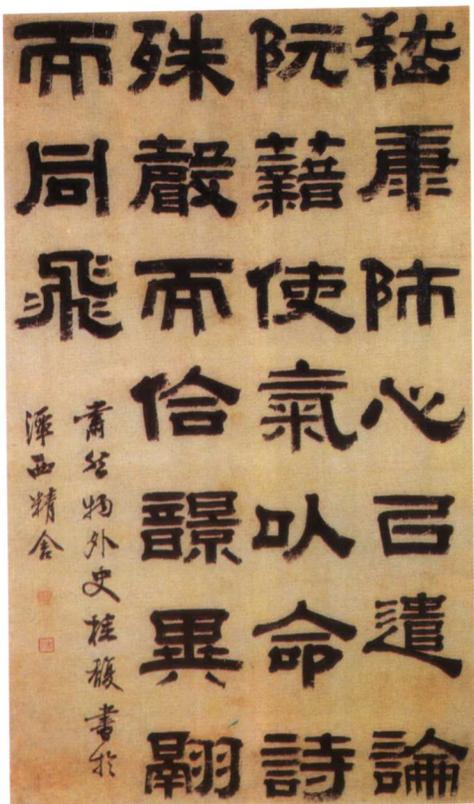 嵇康師心㠯遣論
阮藉使氣以命詩
殊聲而佮響異翮
而同飛
肅然物外史桂馥書於
潭西精舍